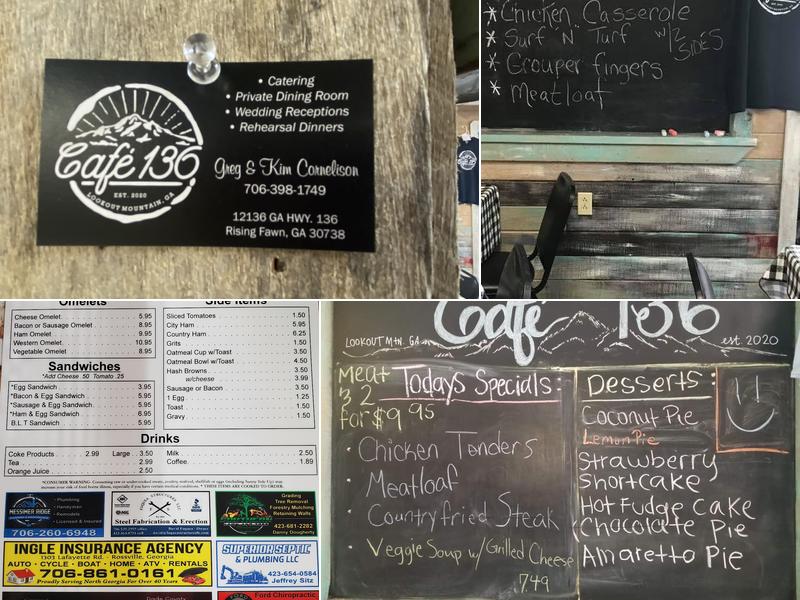 Catering
Private Dining Room
Wedding Receptions
Rehearsal Dinners
Café 136
EST. 2020
LOOKOUT MOUNTAIN, GA
Greg & Kim Cornelison
706-398-1749
12136 GA HWY. 136
Rising Fawn, GA 30738
* Chicken Casserole
* Surf "N" Turf w/2 SIDES
* Grouper fingers
* Meatloaf
Omelets
Cheese Omelet 5.95
Bacon or Sausage Omelet 8.95
Ham Omelet 9.95
Western Omelet 10.95
Vegetable Omelet 8.95
Sandwiches
*Add Cheese .50 Tomato .25
*Egg Sandwich 3.95
*Bacon & Egg Sandwich 5.95
*Sausage & Egg Sandwich 5.95
*Ham & Egg Sandwich 6.95
B.L.T Sandwich 5.95
Side Items
Sliced Tomatoes 1.50
City Ham 5.95
Country Ham 6.25
Grits 1.50
Oatmeal Cup w/Toast 3.50
Oatmeal Bowl w/Toast 4.50
Hash Browns 3.50
w/cheese 3.99
Sausage or Bacon 3.50
1 Egg 1.25
Toast 1.50
Gravy 1.50
Drinks
Coke Products 2.99 Large 3.50
Tea 2.99
Orange Juice 2.50
Milk 2.50
Coffee 1.89
MESSMER RIDGE
• Plumbing
• Handyman
• Remodels
• Licensed & Insured
706-260-6948
Steel Fabrication & Erection
Grading
Tree Removal
Forestry Mulching
Retaining Walls
423-681-2282
Danny Dougherty
INGLE INSURANCE AGENCY
1301 Lafayette Rd. • Rossville, Georgia
AUTO • CYCLE • BOAT • HOME • ATV • RENTALS
706-861-0161
Proudly Serving North Georgia For Over 40 Years
SUPERIOR SEPTIC
& PLUMBING LLC
423-654-0584
Jeffrey Sitz
Dade County
Ford Chiropractic
Cafe 136
LOOKOUT MTN. GA
est. 2020
Meat
& 2
for $9.95
Todays Specials:
• Chicken Tenders
• Meatloaf
• Country fried Steak
• Veggie Soup w/Grilled Cheese
7.49
Desserts:
Coconut Pie
Lemon Pie
Strawberry
Shortcake
Hot Fudge Cake
Chocolate Pie
Amaretto Pie